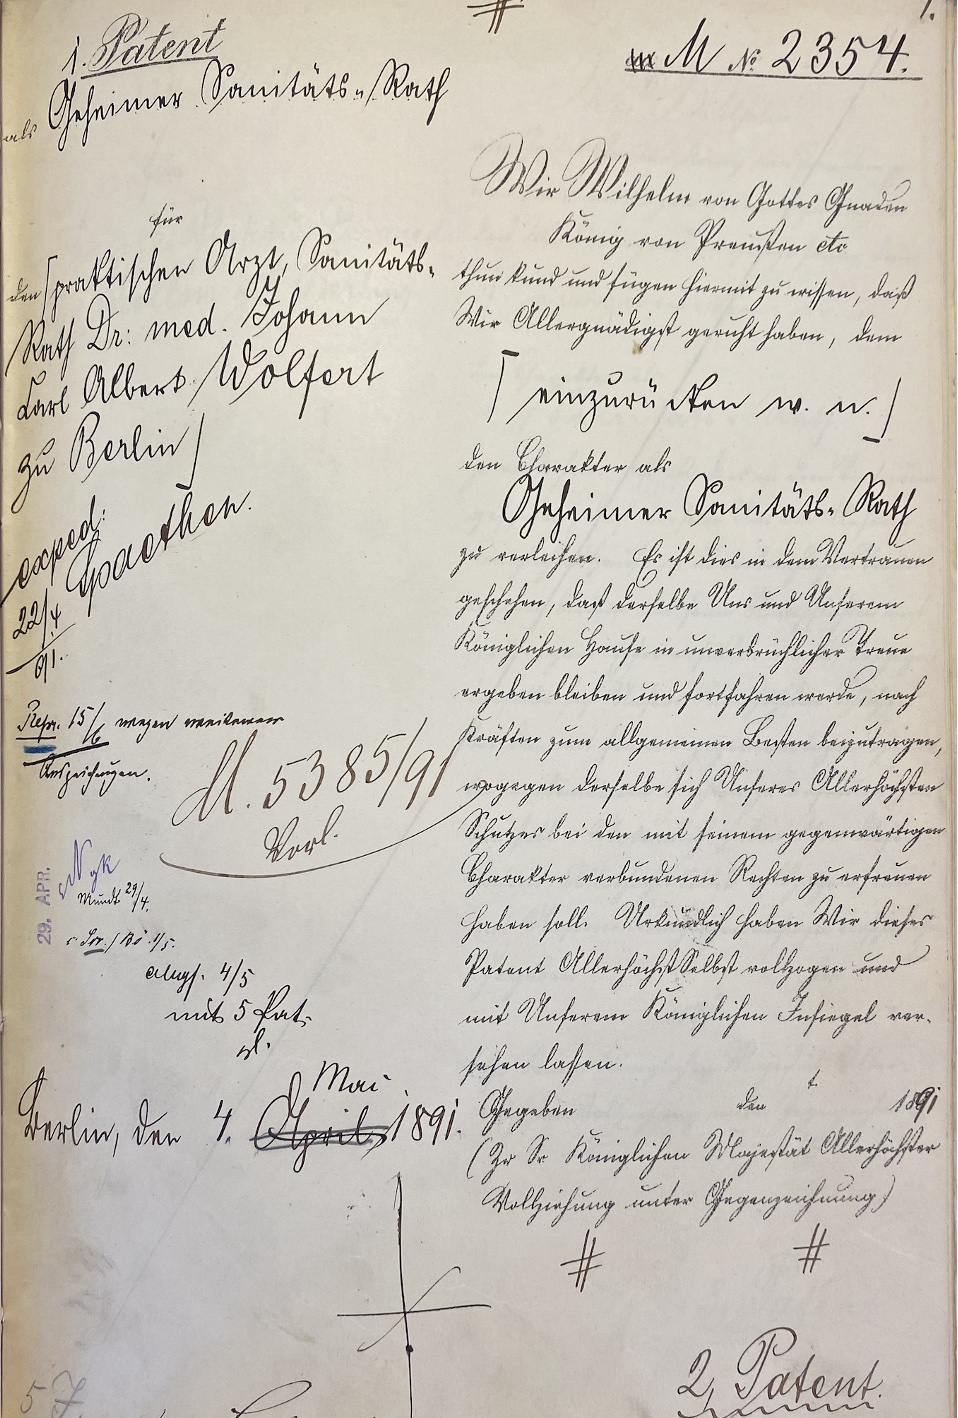 1.
M № 2354.
1. Patent
als Geheimer Sanitäts-Rath
für
den [praktischen Arzt, Sanitäts-
Rath Dr: med. Johann
Carl Albert Wolfert
zu Berlin]
exped:
22/4
91.
Repr. 15/6 wegen weiterer
Auszeichnungen.
M. 5385/91
Vorl.
29. APR.
Mundt 29/4.
abges. 4/5
mit 5 Pat.
Mai
Berlin, den 4. April 1891.
Wir Wilhelm von Gottes Gnaden
König von Preußen etc
thun kund und fügen hiermit zu wissen, daß
Wir Allergnädigst geruht haben, dem
[einzurücken w. n.]
den Charakter als
Geheimer Sanitäts-Rath
zu verleihen. Es ist dies in dem Vertrauen
geschehen, daß derselbe Uns und Unserem
Königlichen Hause in unverbrüchlicher Treue
ergeben bleiben und fortfahren werde, nach
Kräften zum allgemeinen Besten beizutragen,
wogegen derselbe sich Unseres Allerhöchsten
Schutzes bei den mit seinem gegenwärtigen
Charakter verbundenen Rechten zu erfreuen
haben soll. Urkundlich haben Wir dieses
Patent AllerhöchstSelbst vollzogen und
mit Unserem Königlichen Insiegel ver-
sehen lassen.
Gegeben den 1891
(Zr Sr Königlichen Majestät Allerhöchster
Vollziehung unter Gegenzeichnung)
2, Patent.